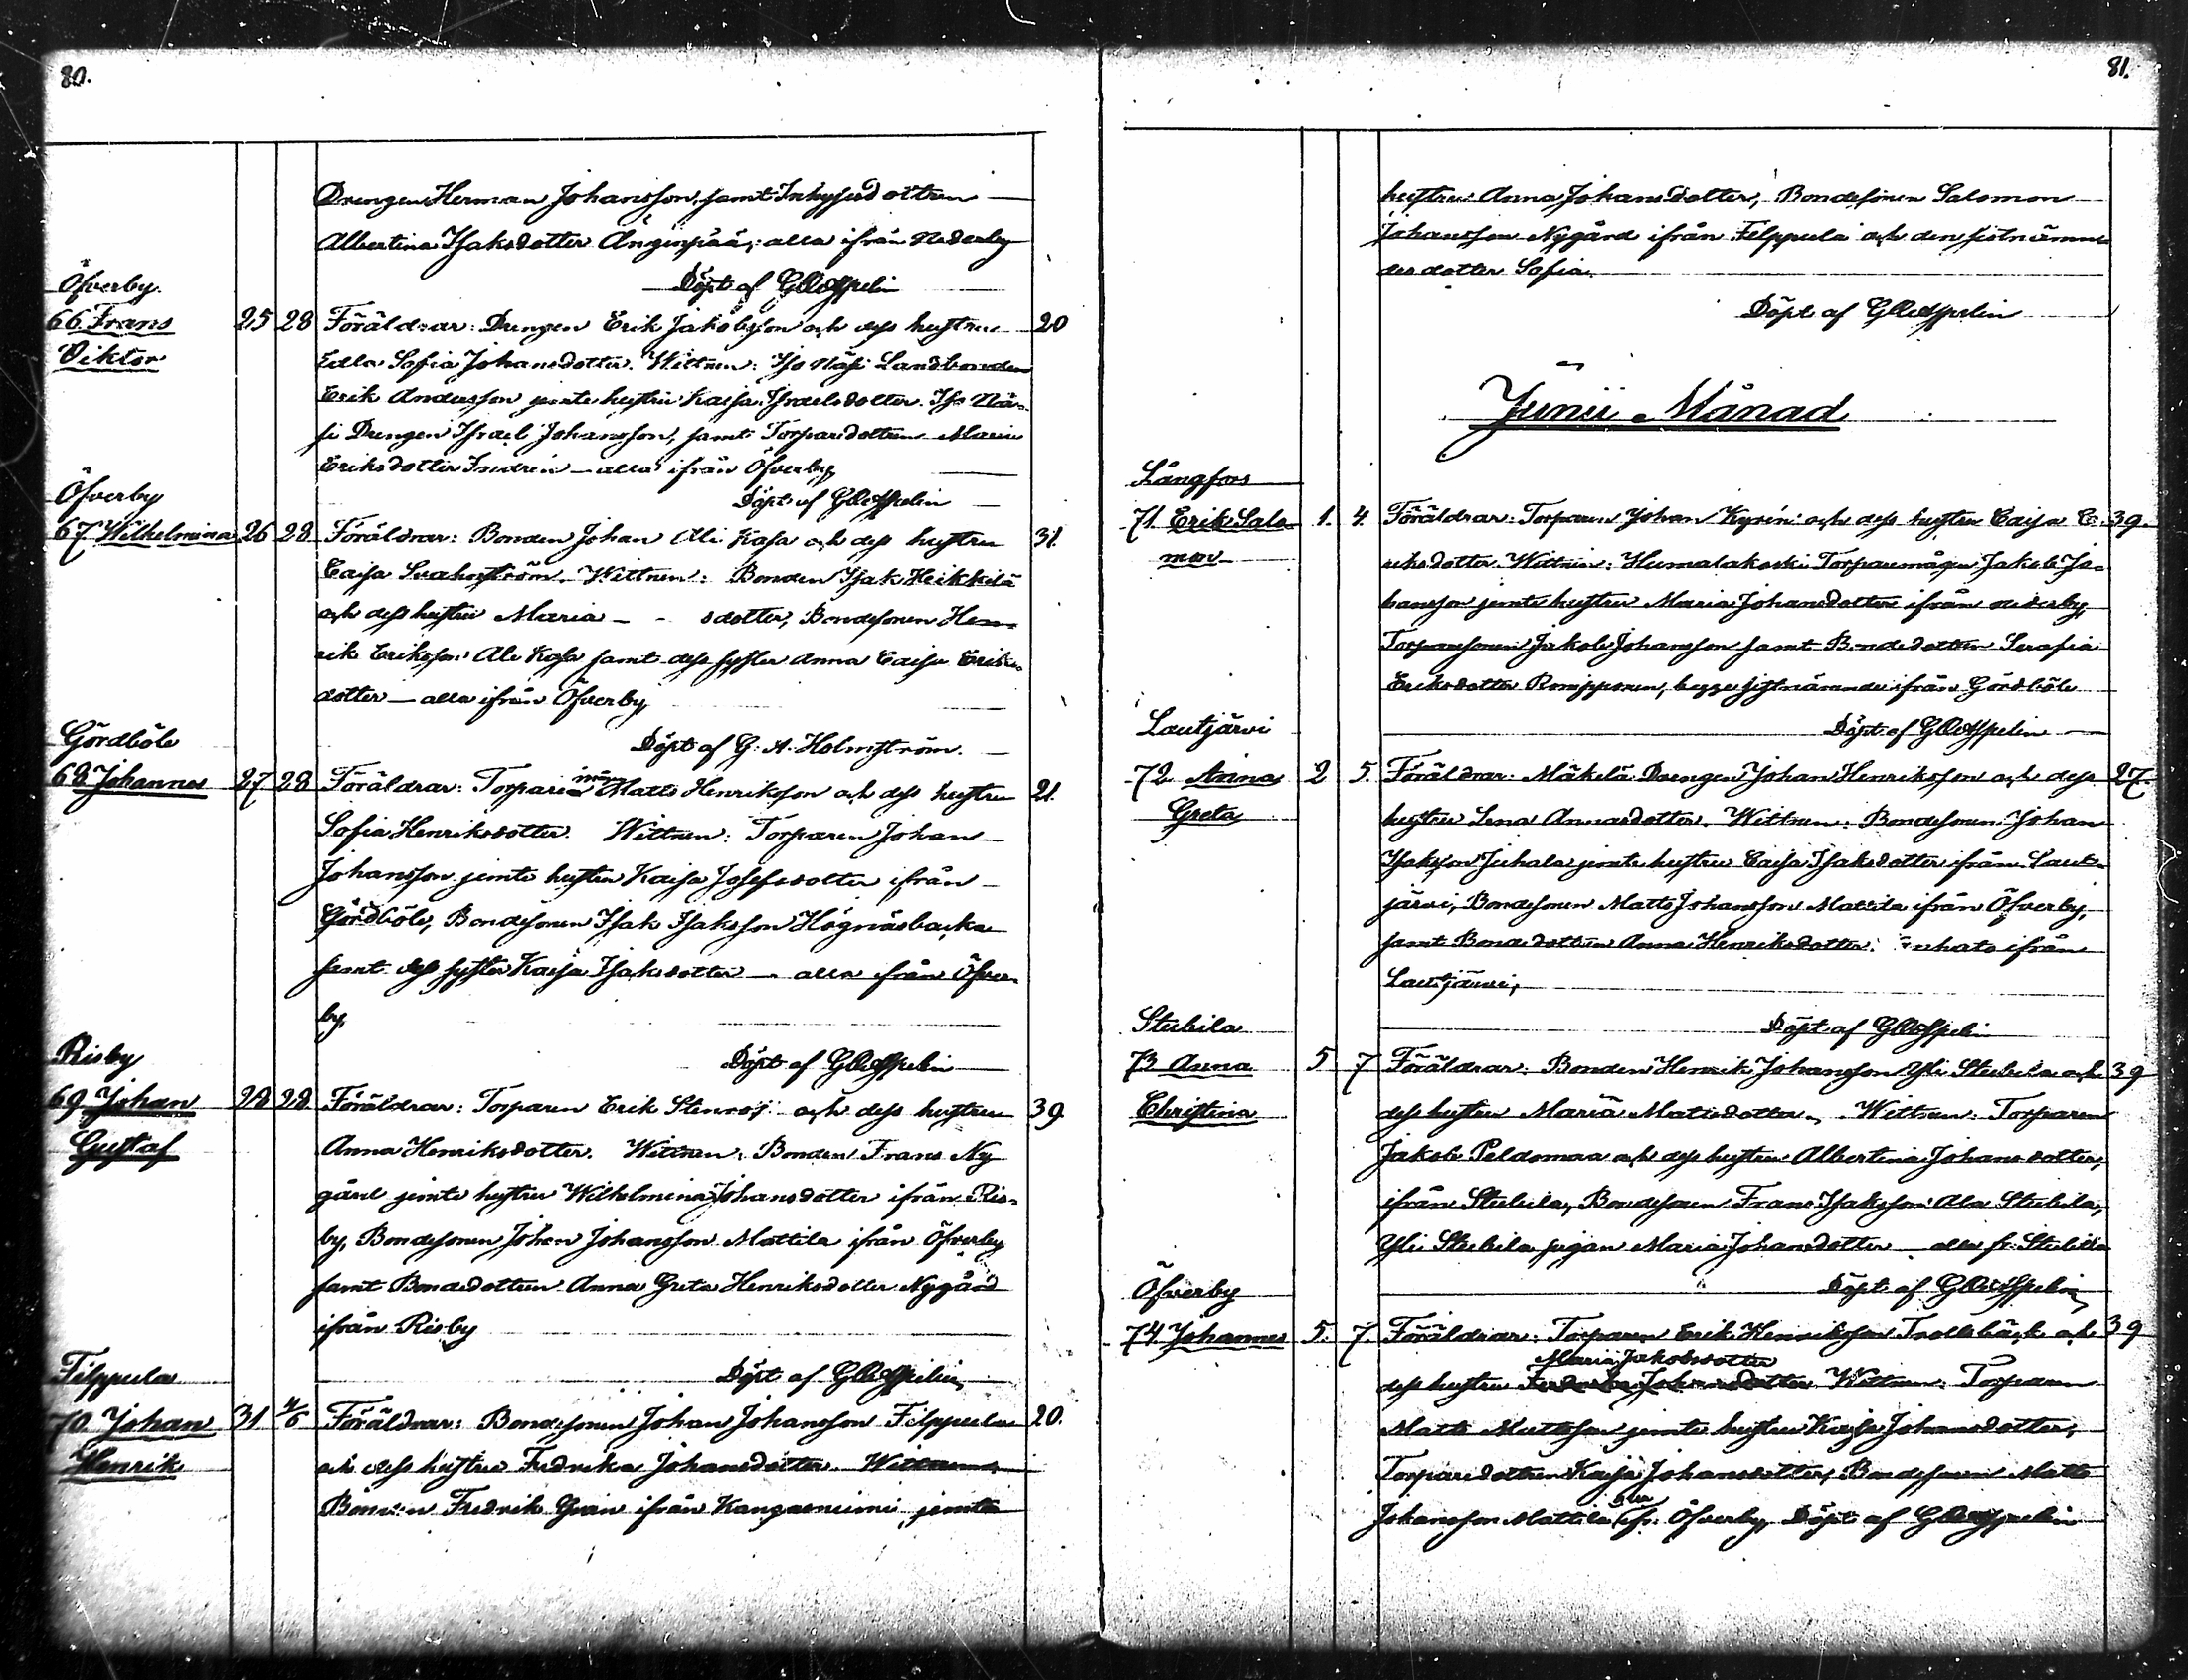 80.
Drengen Herman Johansson, samt Inhysesdottren
Albertina Isaksdotter Änginpää; alla ifrån Nederby
Döpt af
Öfverby.
66 Frans 25 28 Föräldrar: Drengen Erik Jakobsson och dess hustru 20
Viktor
Edla Sofia Johansdotter. Wittnen: Iso Näsi Landbonden
Erik Andersson jemte hustru Kaisa Israelsdotter. Iso Nä-
si Drengen Israel Johansson, samt Torparedottren Maria
Eriksdotter — alla ifrån Öfverby
Öfverby
Döpt af
67 Wilhelmina 26 28 Föräldrar: Bonden Johan Ali Kasa och dess hustru 31.
Caisa. Wittnen: Bonden Isak Heikkilä
och dess hustru Maria - - sdotter, Bondesonen Hen-
rik Eriksson Ali Kasa samt dess syster Anna Caisa Eriks-
dotter — alla ifrån Öfverby
Gördböle
Döpt af G. A. Holmström.
68 Johannes 27 28 Föräldrar: Torpare mågen Matts Henriksson och dess hustru 21.
Sofia Henriksdotter. Wittnen: Torparen Johan
Johansson jemte hustru Kaisa Josefsdotter ifrån
Gördböle, Bondesonen Isak Isaksson Högnäsbacka
samt dess syster Kaisa Isaksdotter — alla ifrån Öfver-
by.
Risby
Döpt af
69 Johan 28 28 Föräldrar: Torparen Erik Stenros och dess hustru 39
Gustaf
Anna Henriksdotter. Wittnen: Bonden Frans Ny
gård jemte hustru Wilhelmina Johansdotter ifrån Ris-
by, Bondesonen Johan Johansson Mattila ifrån Öfverby
samt Bondedottren Anna Greta Henriksdotter Nygård
ifrån Risby
Filppula
Döpt af
70. Johan 31 4/6 Föräldrar: Bondesonen Johan Johansson Filppula 20.
Henrik
och dess hustru Fredrika Johansdotter. Wittnen
Bonden Fredrik ifrån Kangasniemi jemte
81.
hustru Anna Johansdotter, Bondesonen Salomon
Johansson Nygård ifrån Filppula och den sistnämn-
des dotter Sofia.
Döpt af
Junii Månad
Långfors
71 Erik Salo- 1. 4. Föräldrar: Torparen Johan Kyrén och dess hustru Caisa E- 39.
mon
riksdotter. Wittnen: Humalakoski Torparemågen Jakob Jo-
hansson jemte hustru Maria Johansdotter ifrån Nederby,
Torparesonen Jakob Johansson samt Bondedottren Serafia
Eriksdotter, begge sistnämnde ifrån Gördböle
Lautjärvi
Döpt af
72 Anna 2 5. Föräldrar: Mäkelä Drengen Johan Henriksson och dess 27.
Greta
hustru Lena Annasdotter. Wittnen: Bondesonen Johan
Isaksson Juhala jemte hustru Caisa Isaksdotter ifrån Laut-
järvi, Bondesonen Matts Johansson Mattila ifrån Öfverby,
samt Bondedottren Anna Henriksdotter ifrån
Lautjärvi,
Stubila
Döpt af
73 Anna 5 7 Föräldrar: Bonden Henrik Johansson Yli Stubila och 39
Christina
dess hustru Maria Mattsdotter. Wittnen: Torparen
Jakob Peldomaa och dess hustru Albertina Johansdotter,
ifrån Stubila, Bondesonen Frans Isaksson Ala Stubila,
Yli Stubila pigan Maria Johansdotter alla fr. Stubila
Öfverby
Döpt af
74 Johannes 5. 7. Föräldrar: Torparen Erik Henriksson Trollebäck och 39
Maria Jakobsdotter
dess hustru Fredrika Johansdotter Wittnen: Torparen
Matts Mattsson jemte hustru Kaisa Johansdotter,
Torparedottren Kaisa Johansdotter, Bondesonen Matts
Johansson Mattila alla fr. Öfverby, Döpt af